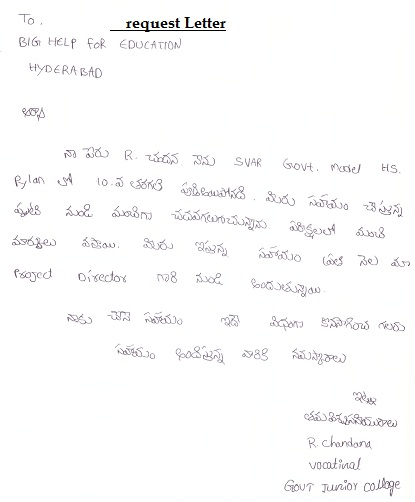 To.
request Letter
BIGI HELP FOR EDUCATION
HYDERABAD
నా పేరు R. చందన నేను SVAR Govt. Model HS.
Pylan లో 10.వ తరగతి పూర్తిఅయిపోనది. మీరు సహాయం చేస్తున్న
నుండి మంచిగా చదువగలుగుచున్నాను. పరీక్షలలో మంచి
మార్కులు వచ్చాయి. మీరు ఇస్తున్న సహాయం ప్రతి నెల మా
Project Director గారి నుండి అందుతున్నాయి.
నాకు చేసే సహాయం ఇదే విధంగా కొనసాగించ గలరు
సహాయం అందిస్తున్న వారికి నమస్కారాలు
ఇట్లు
R. Chandana
vocatinal
GOVT Junior Collage